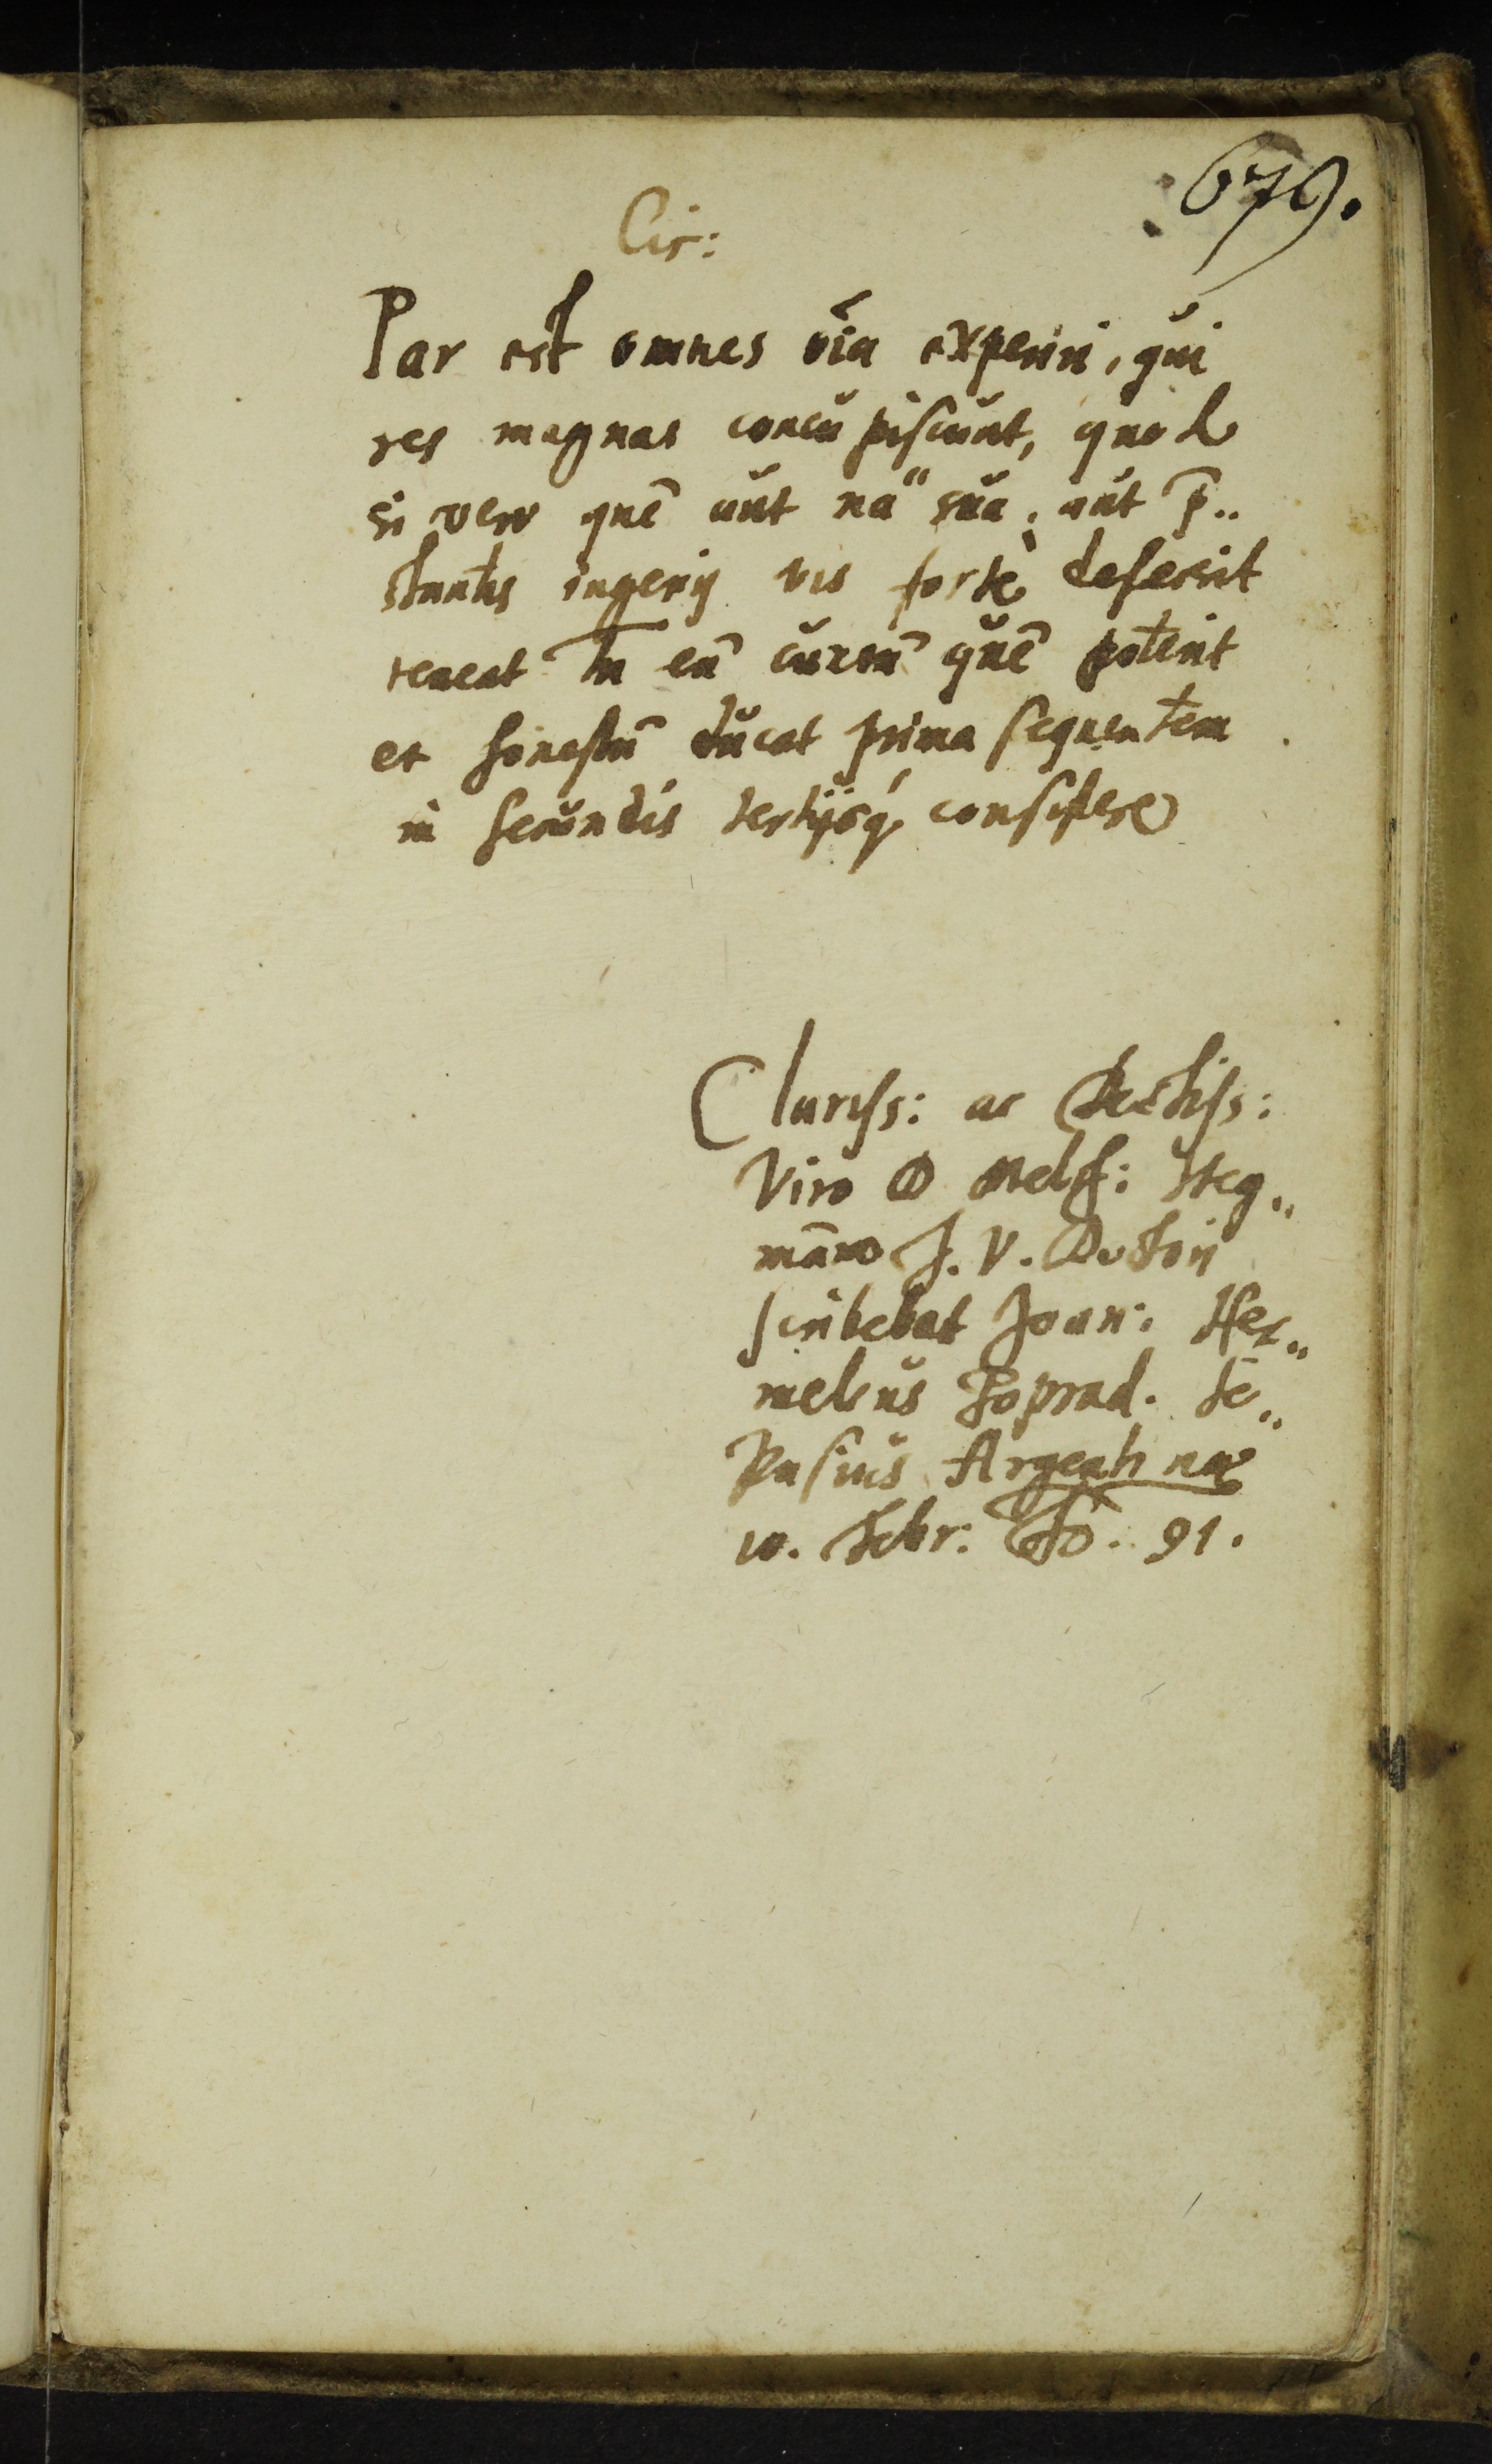 679.
Cic:
Par est omnes oīa experiri, qui
res magnas concupiscunt, quod
si vero quē aut na" sua, aut p̄„
stantis ingenij vis fortè deserit
teneat tn̄ eū cursū quē poterit
et honestū ducat prima sequentem
in secundis tertijsq́ consistere
Clariss: ac
Viro D Melch: Steg„
māno J. V. Doctori
scribebat Joan: Her„
melius Poprad. Sce„
pusius Argenti nae
10. Febr: Ao. 91.